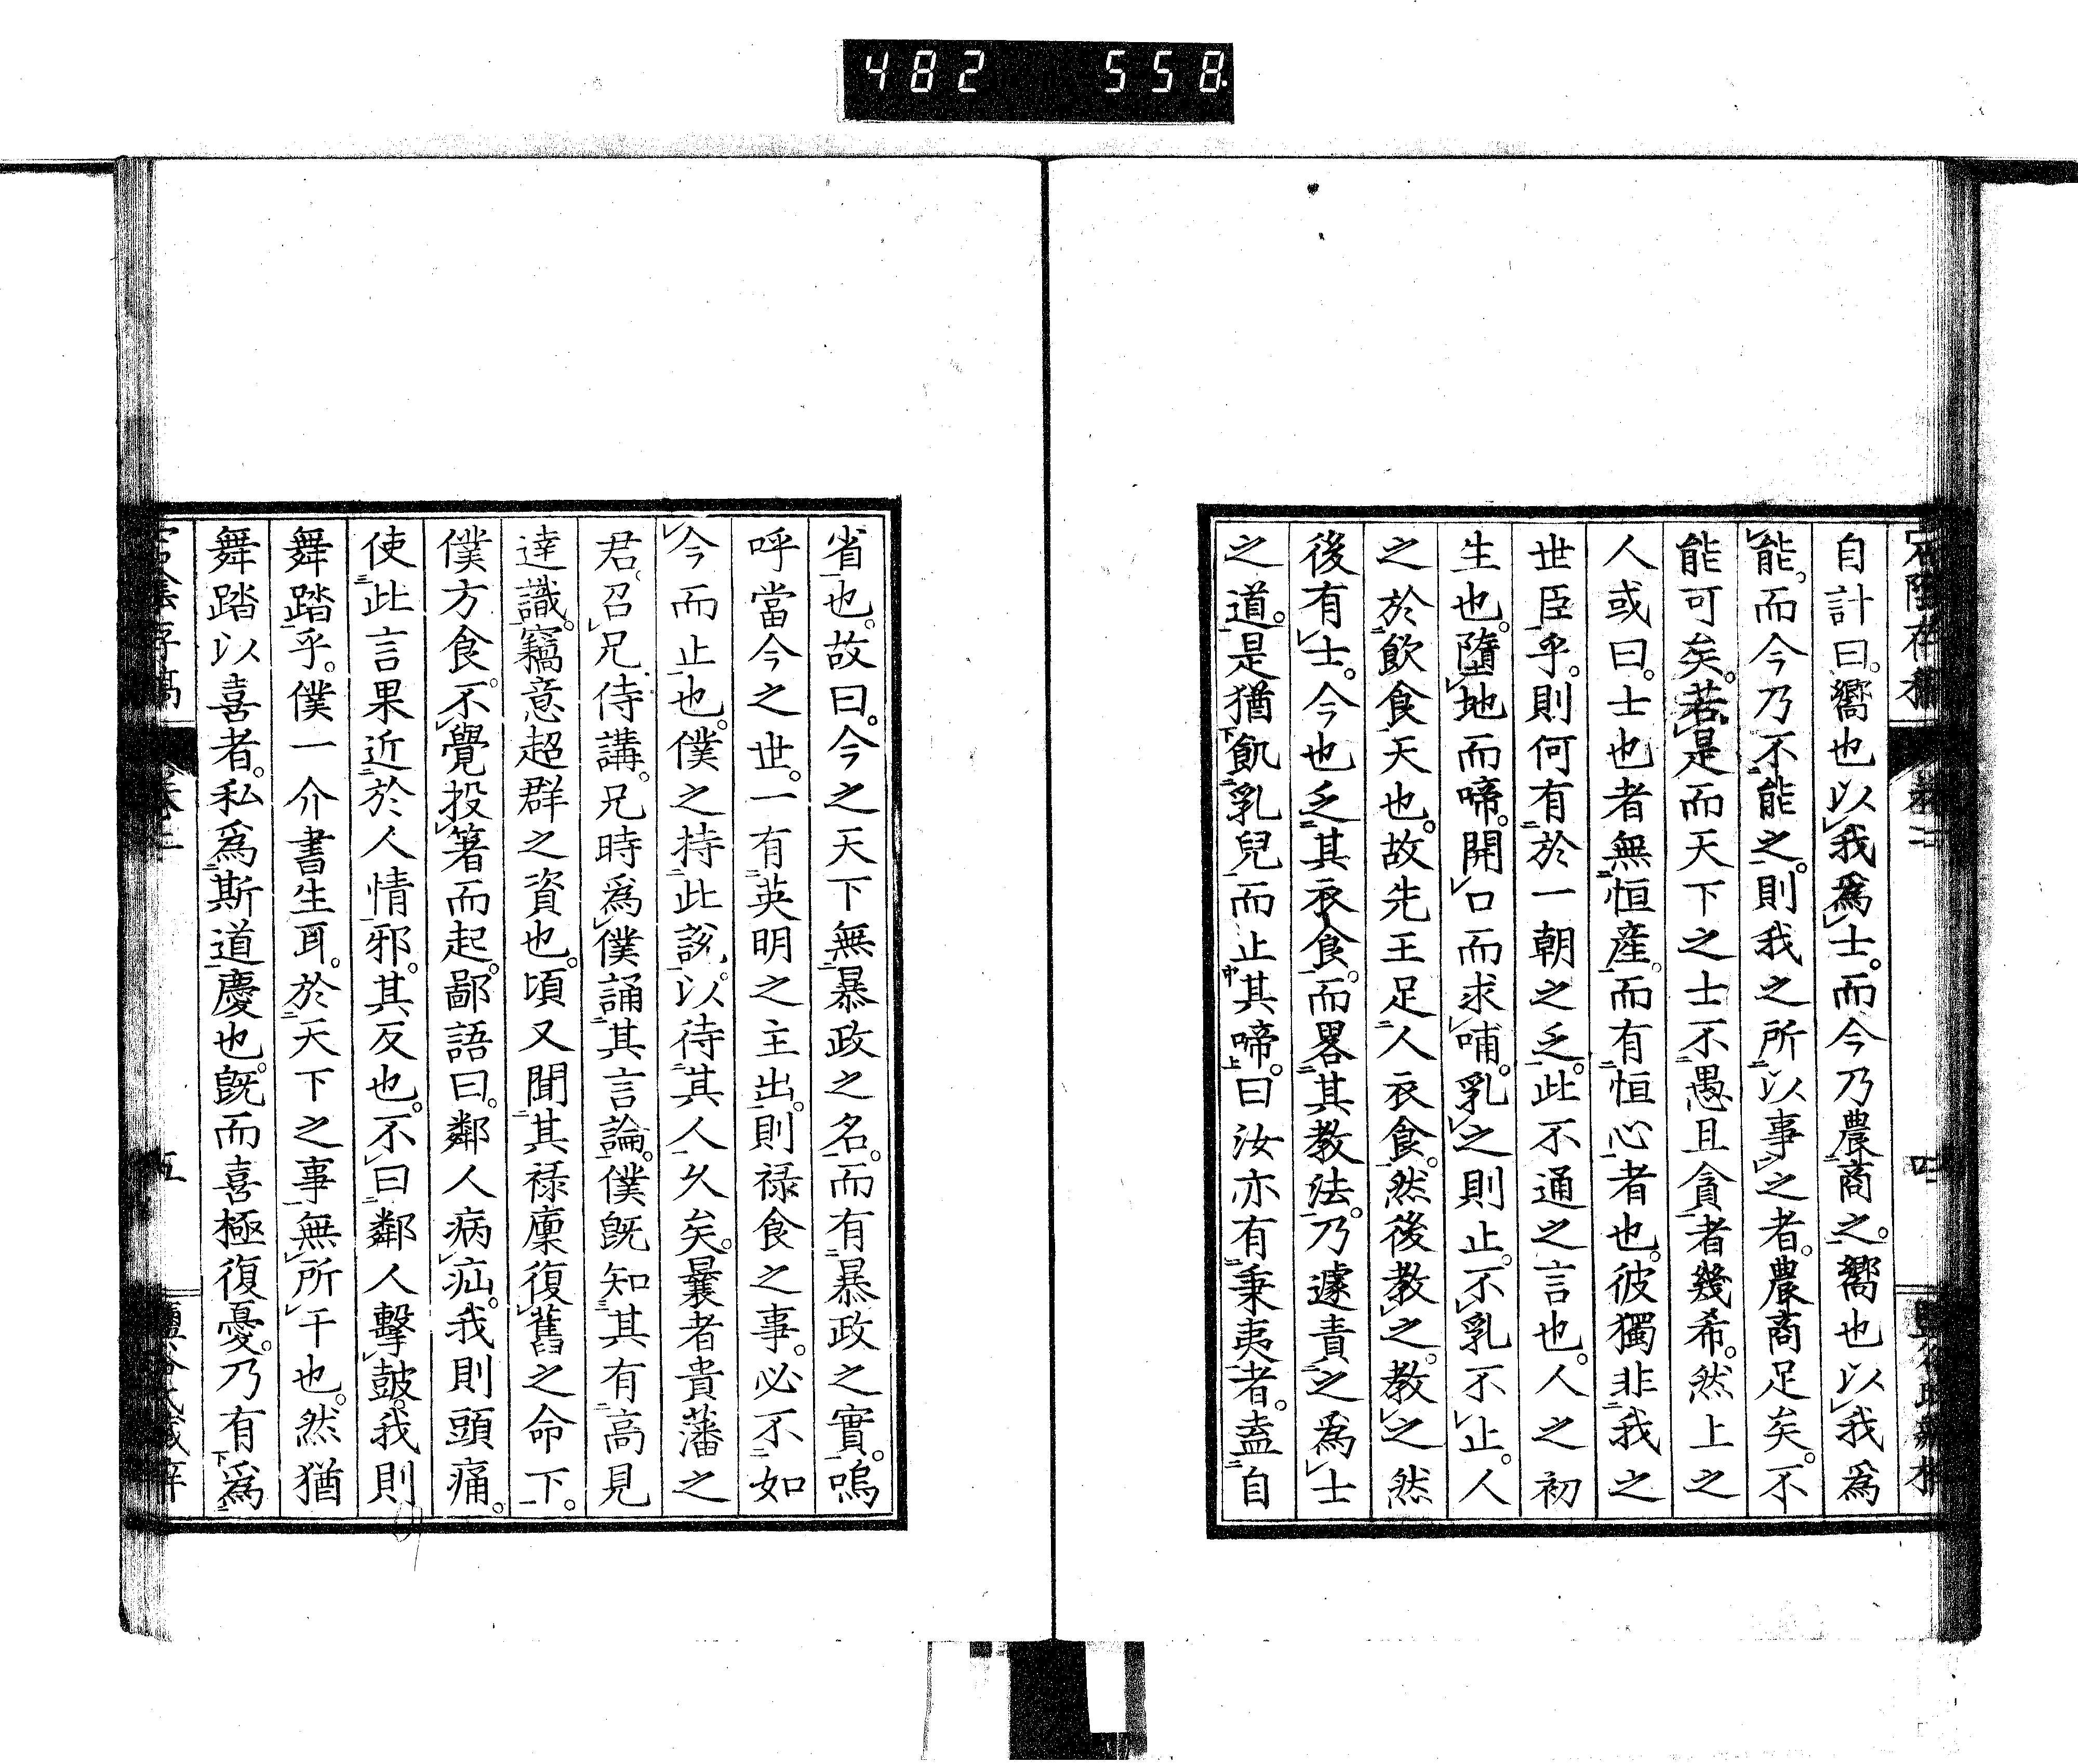 482 558
自計曰。嚮也以我爲士。而今乃農商之。嚮也以我爲
能。而今乃不能之。則我之所以事之者。農商足矣。不
能可矣。若是而天下之士不愚且貪者幾希。然上之
人或曰。士也者無恒產。而有恒心者也。彼獨非我之
世臣乎。則何有於一朝之乏。此不通之言也。人之初
生也。墮地而啼。開口而求哺。乳之則止。不乳不止。人
之於飲食天也。故先王足人衣食。然後教之。教之然
後有士。今也乏其衣食。而畧其教法。乃遽責之爲士
之道。是猶飢乳兒而止其啼。曰汝亦有秉夷者。盍自
省也。故曰。今之天下無暴政之名。而有暴政之實。嗚
呼當今之世。一有英明之主出。則禄食之事。必不如
今而止也。僕之持此說。以待其人久矣。曩者貴藩之
君。召兄侍講。兄時爲僕誦其言論。僕既知其有高見
達識。竊意超群之資也。頃又聞其禄廩復舊之命下。
僕方食。不覺投箸而起。鄙語曰。鄰人病疝。我則頭痛。
使此言果近於人情邪。其反也。不曰鄰人擊鼓。我則
舞踏乎。僕一介書生耳。於天下之事。無所干也。然猶
舞踏以喜者。私爲斯道慶也。既而喜極復憂。乃有爲
卷二
五